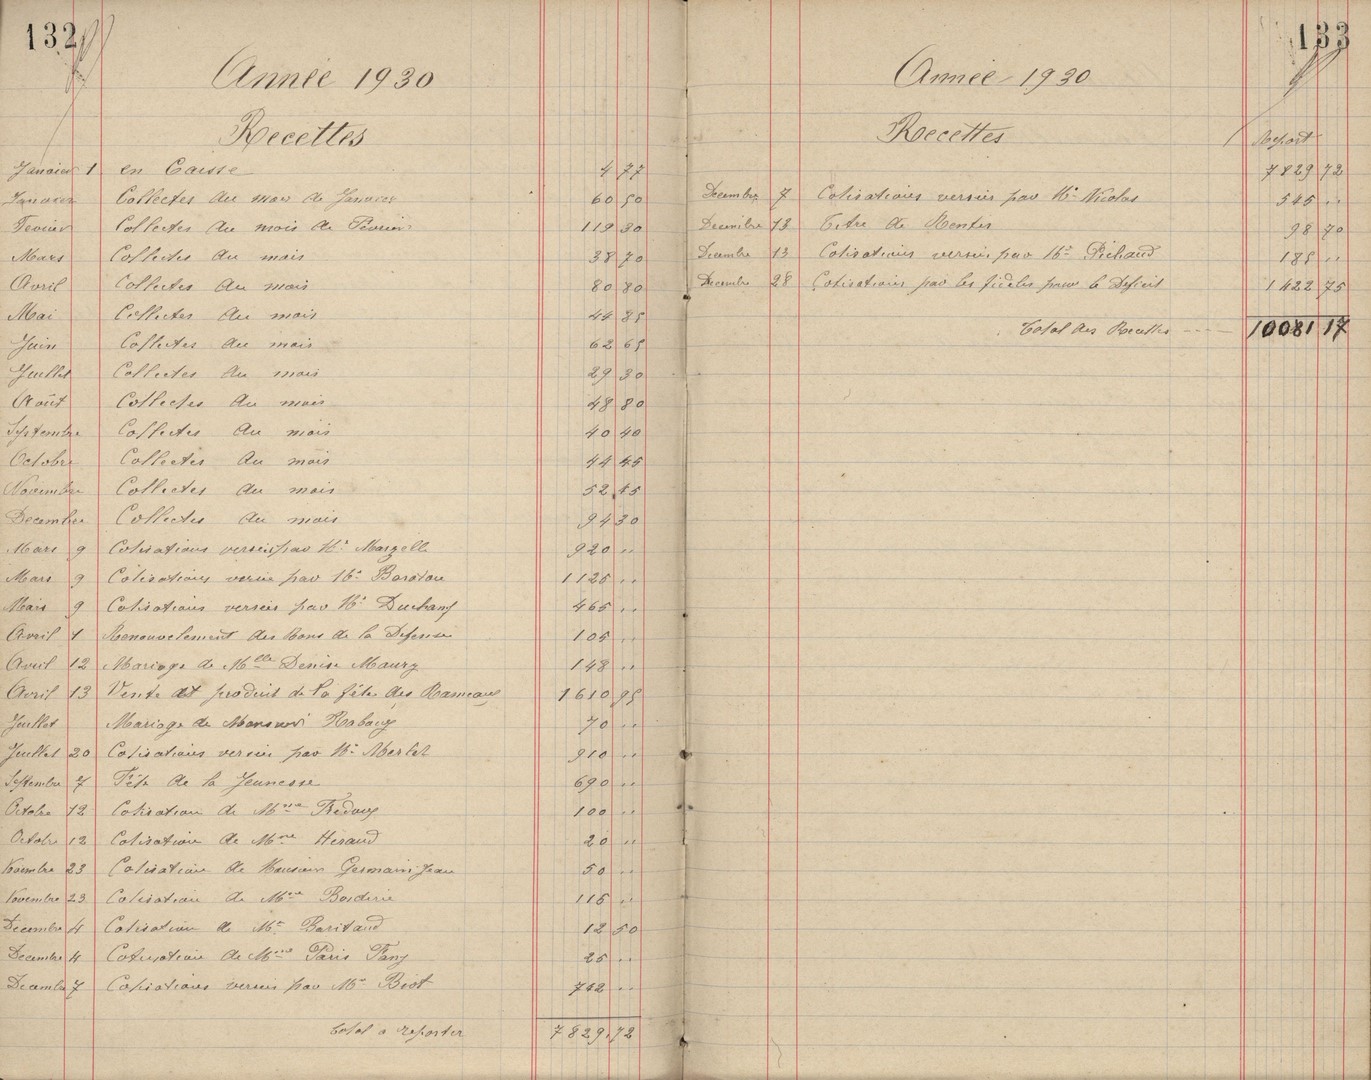 132
Année 1930
Recettes
Janvier 1 en Caisse 4 77
Janvier Collectes du mois de Janvier 60 50
Fevrier Collectes du mois de Fevrier 119 30
Mars Collectes du mois 38 70
Avril Collectes du mois 80 80
Mai Collectes du mois 44 85
Juin Collectes du mois 62 65
Juillet Collectes du mois 29 30
Août Collectes du mois 48 80
Septembre Collectes du mois 40 40
Octobre Collectes du mois 44 45
Novembre Collectes du mois 52 45
Decembre Collectes du mois 94 30
Mars 9 Cotisations versées par Mr Marzelle 920 ..
Mars 9 Cotisations versées par Mr 1125 ..
Mars 9 Cotisations versées par Mr Duchamp 465 ..
Avril 1 Renouvelement des Bons de la Defense 105 ..
Avril 12 Mariage de Mlle Denise Maury 148 ..
Avril 13 Vente et produit de la fête des Rameaux 1610 95
Juillet Mariage de Monsieur Rabaux 70 ..
Juillet 20 Cotisations versées par Mr Merlet 910 ..
Septembre 7 Fête de la Jeunesse 690 ..
Octobre 12 Cotisation de Mme 100 ..
Octobre 12 Cotisation de Mme Heraud 20 ..
Novembre 23 Cotisation de Monsieur Germain Jean 50 ..
Novembre 23 Cotisation de Mme 115 ..
Decembre 4 Cotisation de Mr Baritaud 12 50
Decembre 4 Cotisation de Mme Paris Fany 25 ..
Decembre 7 Cotisations versées par Mr Biot 742 ..
Total a reporter 7829.72
133
Année 1930
Recettes
Report
7829 72
Decembre 7 Cotisations versées par Mr Nicolas 545 ..
Decembre 13 Titre de Rentes 98 70
Decembre 13 Cotisations versées par Mr Pichaud 185 ..
Decembre 28 Cotisations par les fidèles pour le Deficit 1422 75
Total des Recettes 10081 17